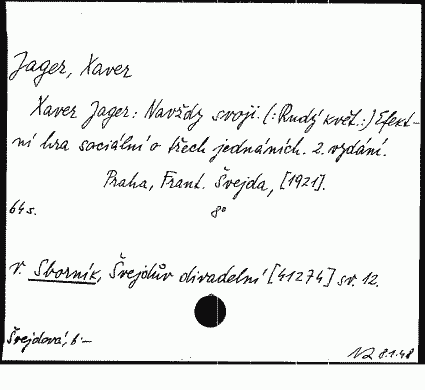 Jager, Xaver
Xaver Jager: Navždy svoji. (: Rudý květ. :) Efekt-
ní hra sociální o třech jednáních. 2. vydání.
Praha, Frant. Švejda, [1921].
64 s. 8°
v. Sborník, Švejdův divadelní [41274] sv. 12.
Švejdová, 6·–
8.1.48